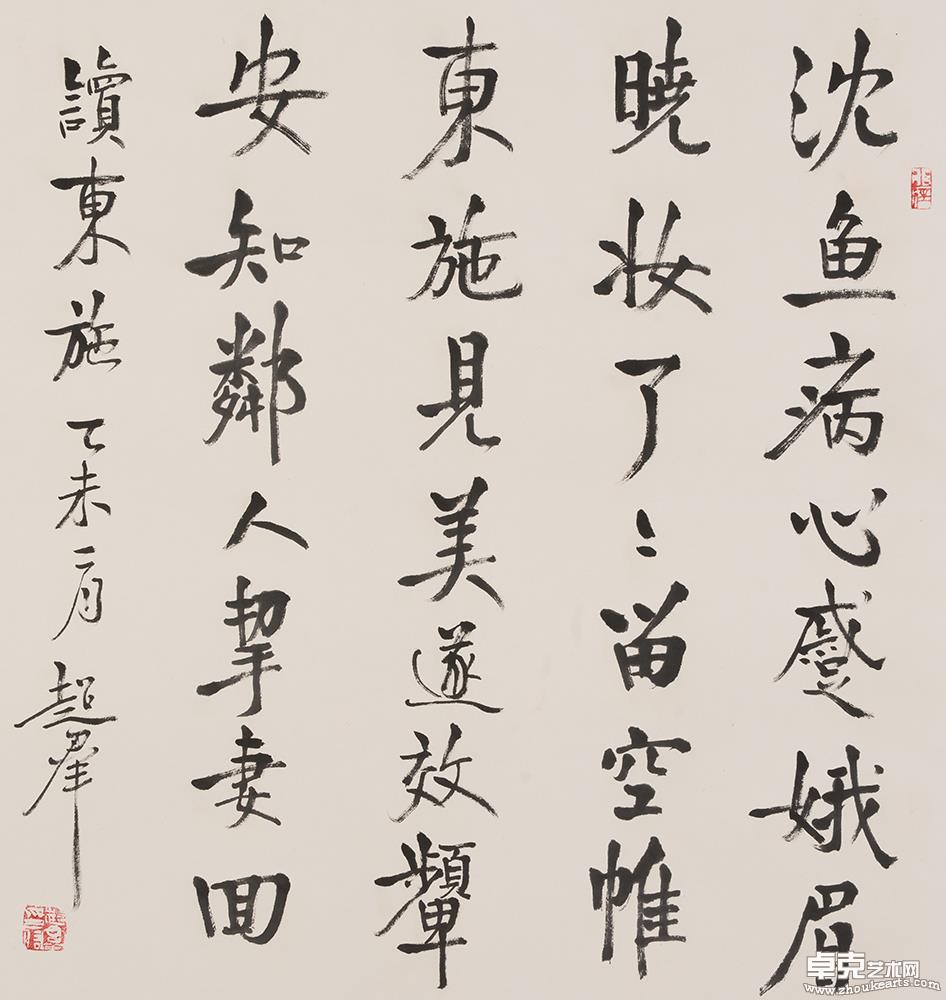 沈鱼病心蹙娥眉
晓妆了〻留空帷
東施見美遂效顰
安知鄰人挈妻回
讀東施 乙未二月 超群
卓克艺术网
www.zhoukearts.com